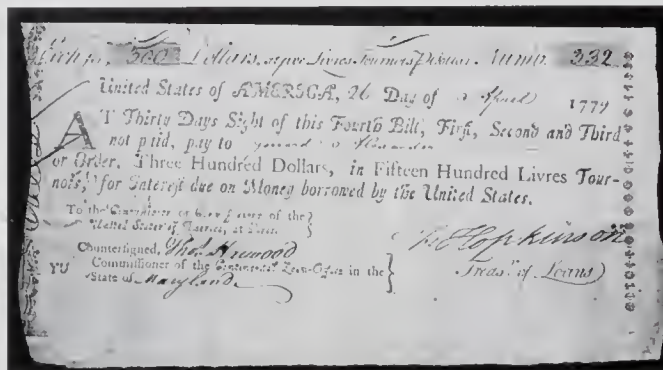 300 Dollars, at five Livres Tournois Numb. 332
United States of AMERICA, 26 Day of April 1779
AT Thirty Days Sight of this Fourth Bill, First, Second and Third
not paid, pay to
or Order, Three Hundred Dollars, in Fifteen Hundred Livres Tour-
nois, for Interest due on Money borrowed by the United States.
To the Commissioner or Commissioners of the
United States of America, at Paris.
Countersigned, Tho.s Harwood
Commissioner of the Continental Loan-Office in the
State of Maryland
F Hopkinson
Treas.r of Loans